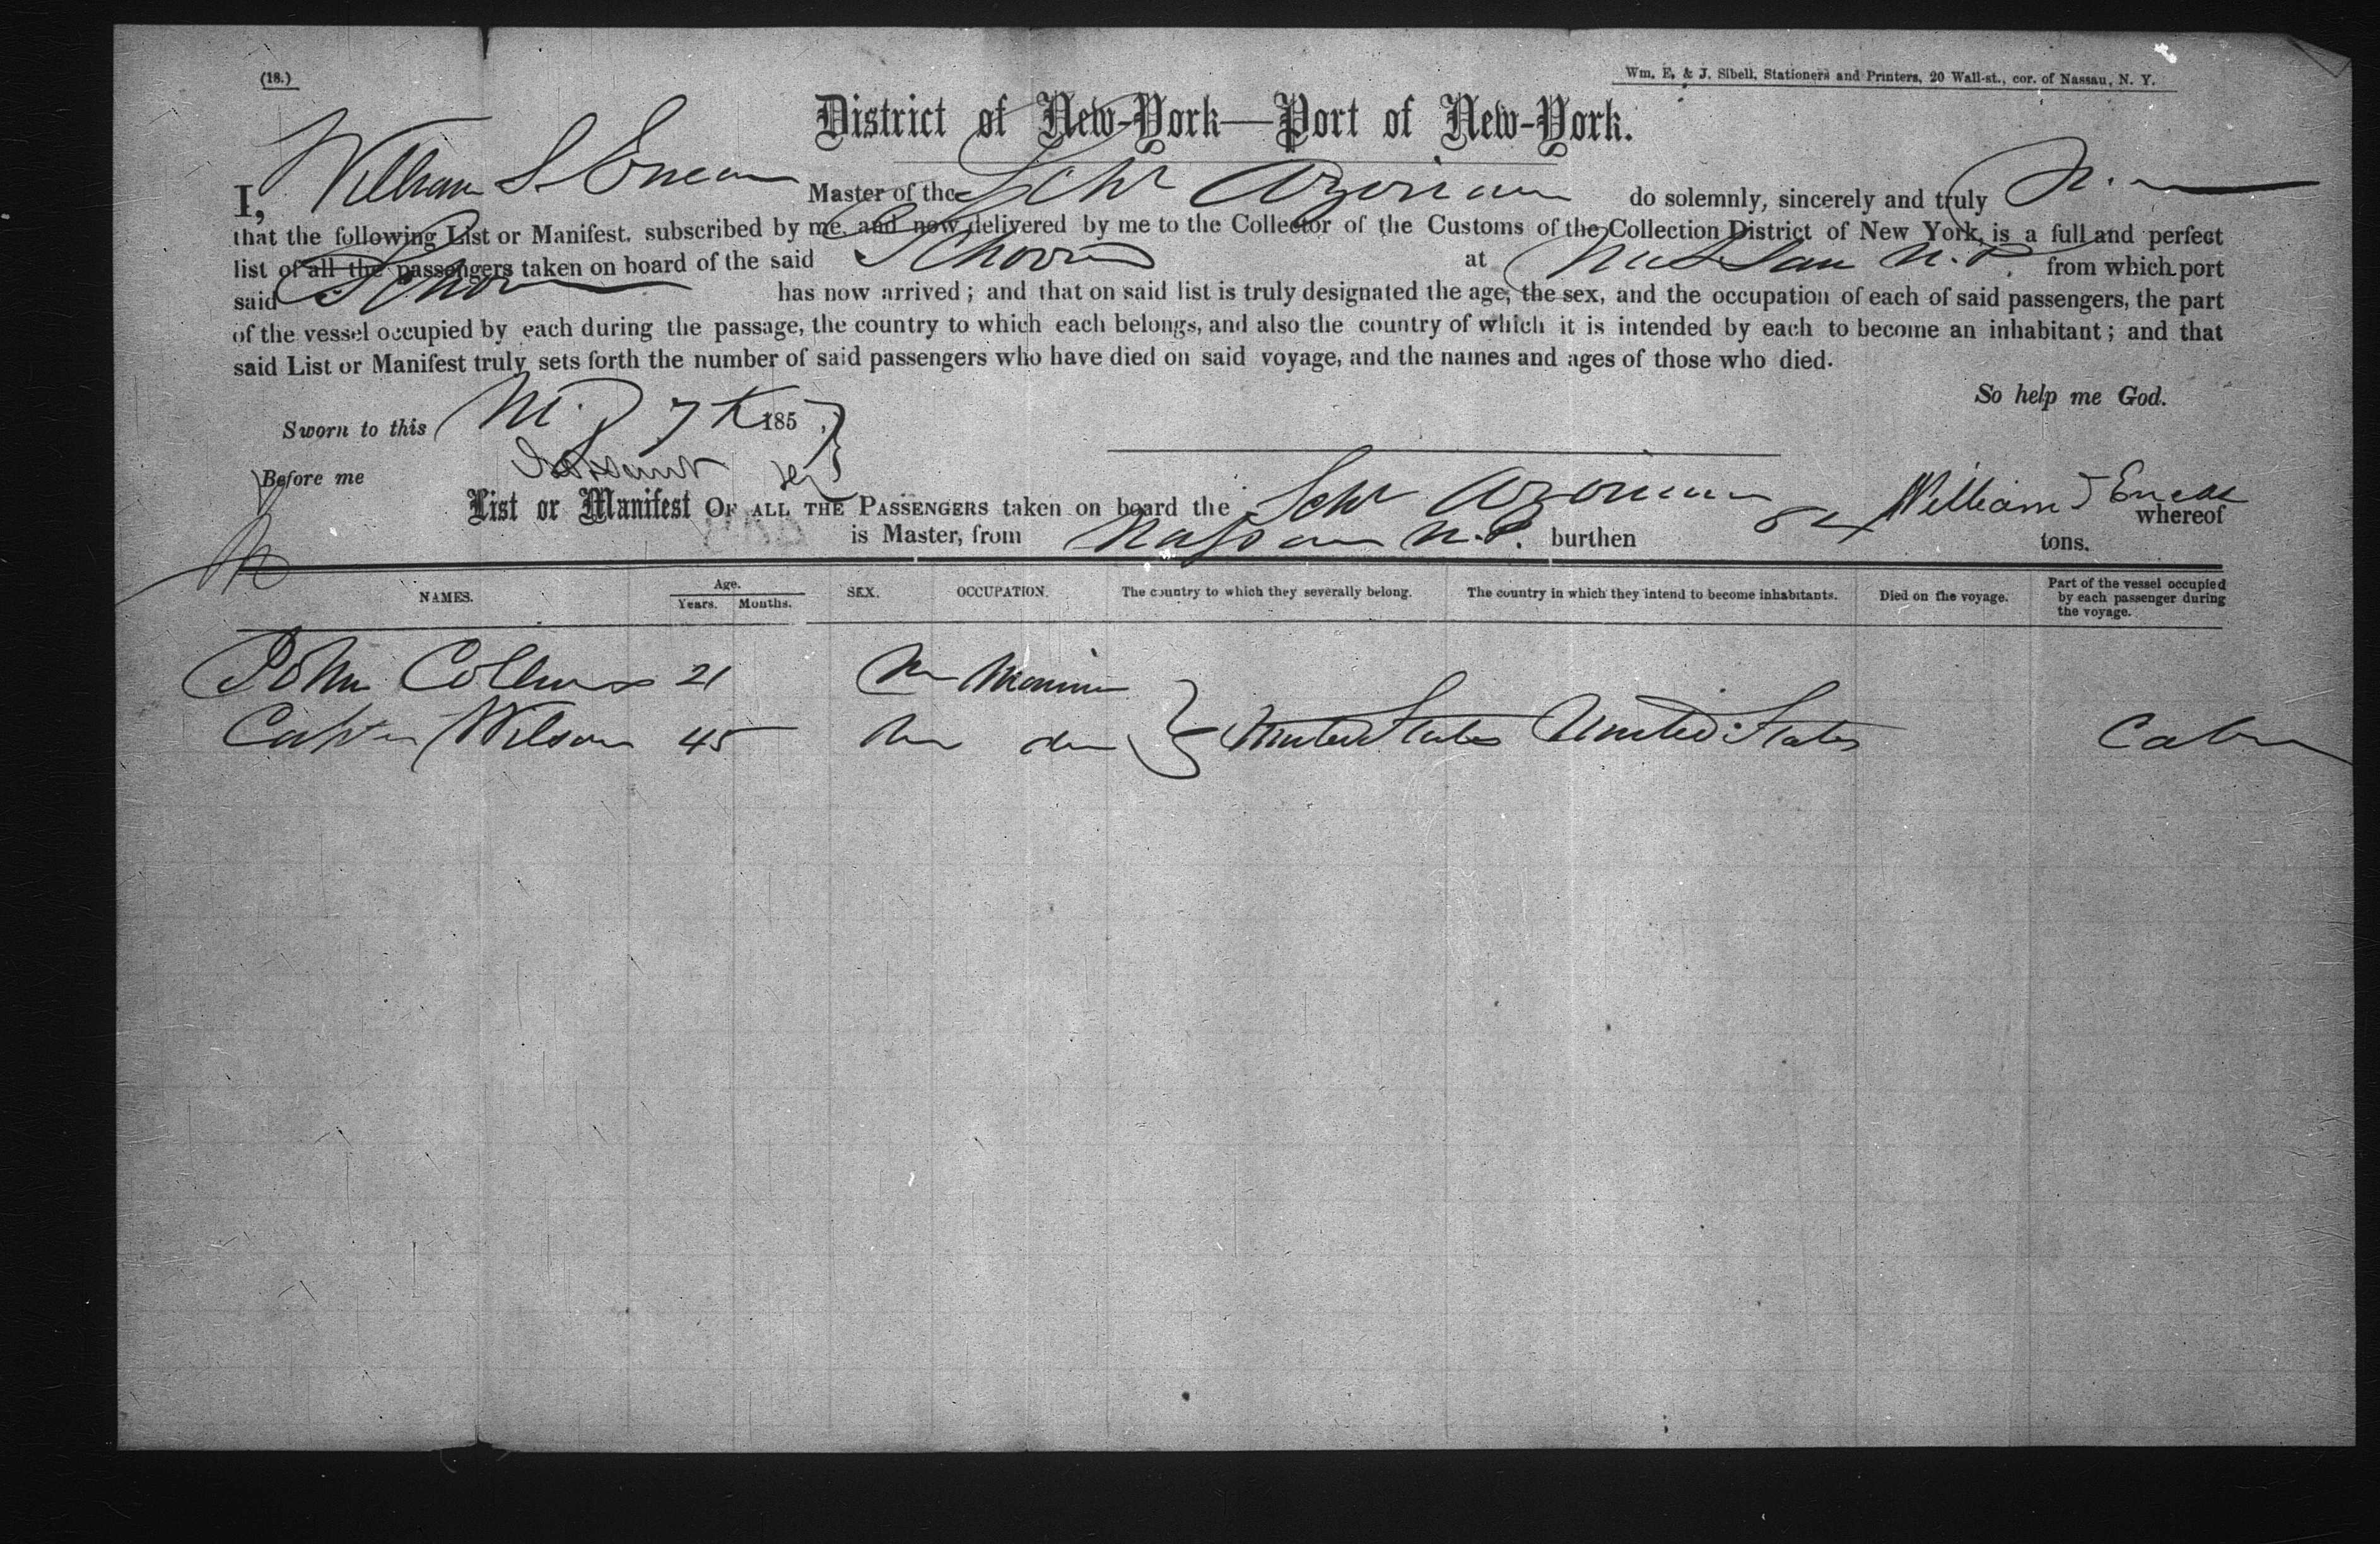 (18.)
Wm. E. & J. Sibell, Stationers and Printers, 20 Wall-st., cor. of Nassau, N. Y.
District of New-York—Port of New-York.
I, William S. Eneas Master of the Schr Azorian do solemnly, sincerely and truly
that the following List or Manifest, subscribed by me, and now delivered by me to the Collector of the Customs of the Collection District of New York, is a full and perfect
list of all the passengers taken on board of the said Schooner at Nassau N.P. from which port
said Schooner has now arrived; and that on said list is truly designated the age, the sex, and the occupation of each of said passengers, the part
of the vessel occupied by each during the passage, the country to which each belongs, and also the country of which it is intended by each to become an inhabitant; and that
said List or Manifest truly sets forth the number of said passengers who have died on said voyage, and the names and ages of those who died.
So help me God.
Sworn to this 7 185
Before me
List or Manifest OF ALL THE PASSENGERS taken on board the Schr Azorian William S Eneas whereof
is Master, from Nassau N.P. burthen 84 tons.
NAMES. Age. Years. Months. SEX. OCCUPATION. The country to which they severally belong. The country in which they intend to become inhabitants. Died on the voyage. Part of the vessel occupied by each passenger during the voyage.
John Collins 21 M Mariner
Wilson 45 M do United States United States Cabin